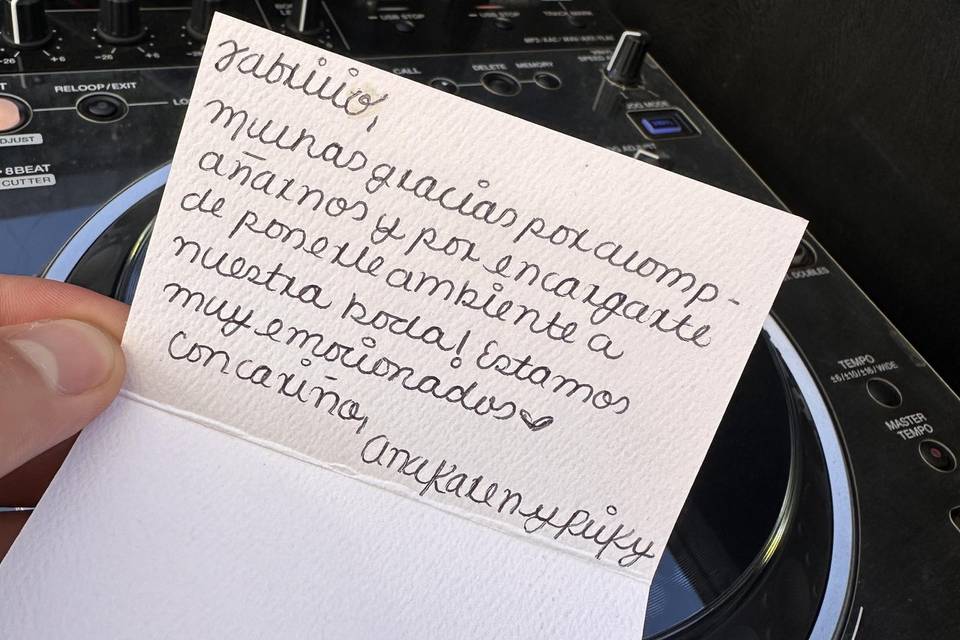 Fabricio,
muchas gracias por acomp-
añarnos y por encargarte
de ponerle ambiente a
nuestra boda! Estamos
muy emocionados♥
con cariño,
Ana Karen y Ricky
CALL
DELETE
MEMORY
RELOOP/EXIT
8BEAT
CUTTER
JOG MODE
TEMPO
±6/±10/±16/WIDE
MASTER
TEMPO